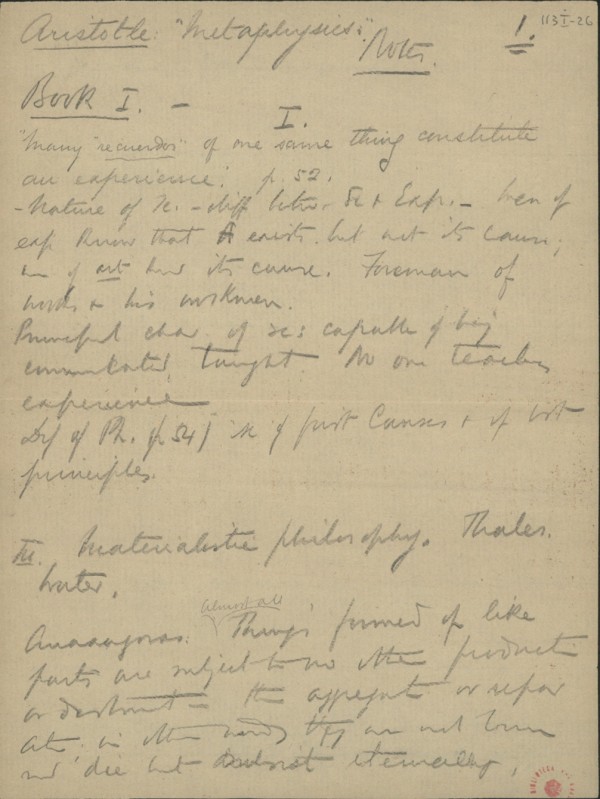 Aristotle: "Metaphysics". Notes. 1. 113I-26
Book I. - I.
"Many "recuerdos" of one same thing constitute
an experience". p. 52.
- Nature of sc. - diff betw. Sc & Exp. - Men of
exp know that A exists, but not its cause;
men of art know its cause. Foreman of
works & his workmen.
Principal char. of sc: capable of being
communicated, taught. No one teaches
experience
Def of Ph. (p. 54) sc of first Causes & of 1st
principles.
III. Materialistic philosophy. Thales.
Water.
almost all
Anaxagoras: Things formed of like
parts are subject to no other production
or destruction = the aggregate or separ
ate in other words they are not born
nor die but subsist eternally,